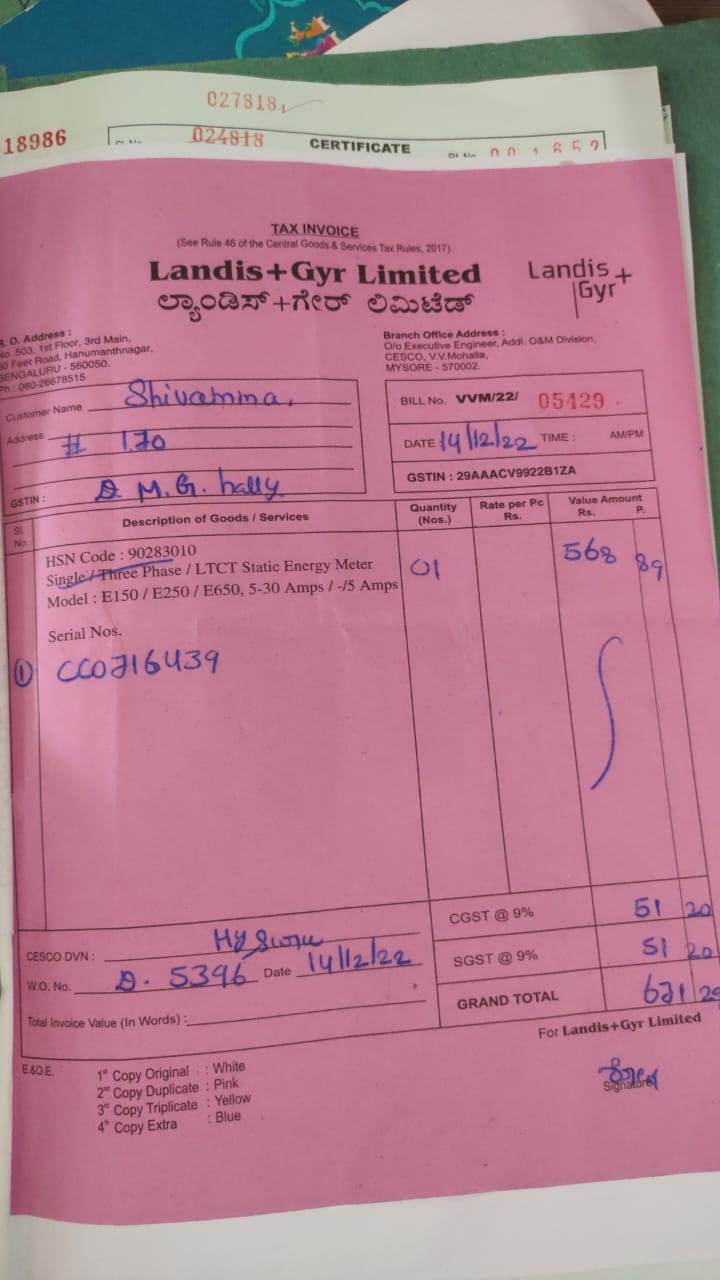 027818
18986
024818
CERTIFICATE
001652
TAX INVOICE
(See Rule 46 of the Central Goods & Services Tax Rules, 2017)
Landis+Gyr Limited
ಲ್ಯಾಂಡಿಸ್+ಗೇರ್ ಲಿಮಿಟೆಡ್
Landis+
Gyr
R. O. Address :
No. 503, 1st Floor, 3rd Main,
50 Feet Road, Hanumanthnagar,
BENGALURU - 560050.
Ph : 080-26678515
Branch Office Address :
O/o Executive Engineer, Addl. O&M Division,
CESCO, V.V.Mohalla,
MYSORE - 570002.
Customer Name Shivamma.
Address # 170
GSTIN : D M.G. hally
BILL No. VVM/22/ 05429
DATE 14/12/22 TIME : AM/PM
GSTIN : 29AAACV9922B1ZA
Sl. No. Description of Goods / Services Quantity (Nos.) Rate per Pc Rs. Value Amount Rs. P.
HSN Code : 90283010
Single / Three Phase / LTCT Static Energy Meter 01 568 89
Model : E150 / E250 / E650, 5-30 Amps / -/5 Amps
Serial Nos.
① CC0716439
CGST @ 9% 51 20
SGST @ 9% 51 20
GRAND TOTAL 671 29
CESCO DVN : Mysuru
W.O. No. D. 5396 Date 14/12/22
Total Invoice Value (In Words) :
For Landis+Gyr Limited
Signature
E.&O.E.
1st Copy Original : White
2nd Copy Duplicate : Pink
3rd Copy Triplicate : Yellow
4th Copy Extra : Blue